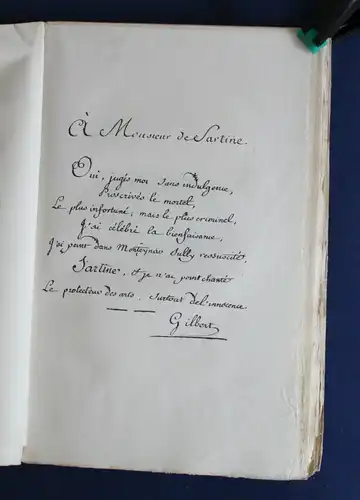 À Monsieur de Sartine.
Oui, jugés moi sans indulgence,
Proscrivés le mortel,
Le plus infortuné, mais le plus criminel,
J'ai célébré la bienfaisance,
J'ai peint dans Monteynas Sully ressuscité
Sartine, et je n'ai point chanté
Le protecteur des arts. surtout del'innocence
Gilbert